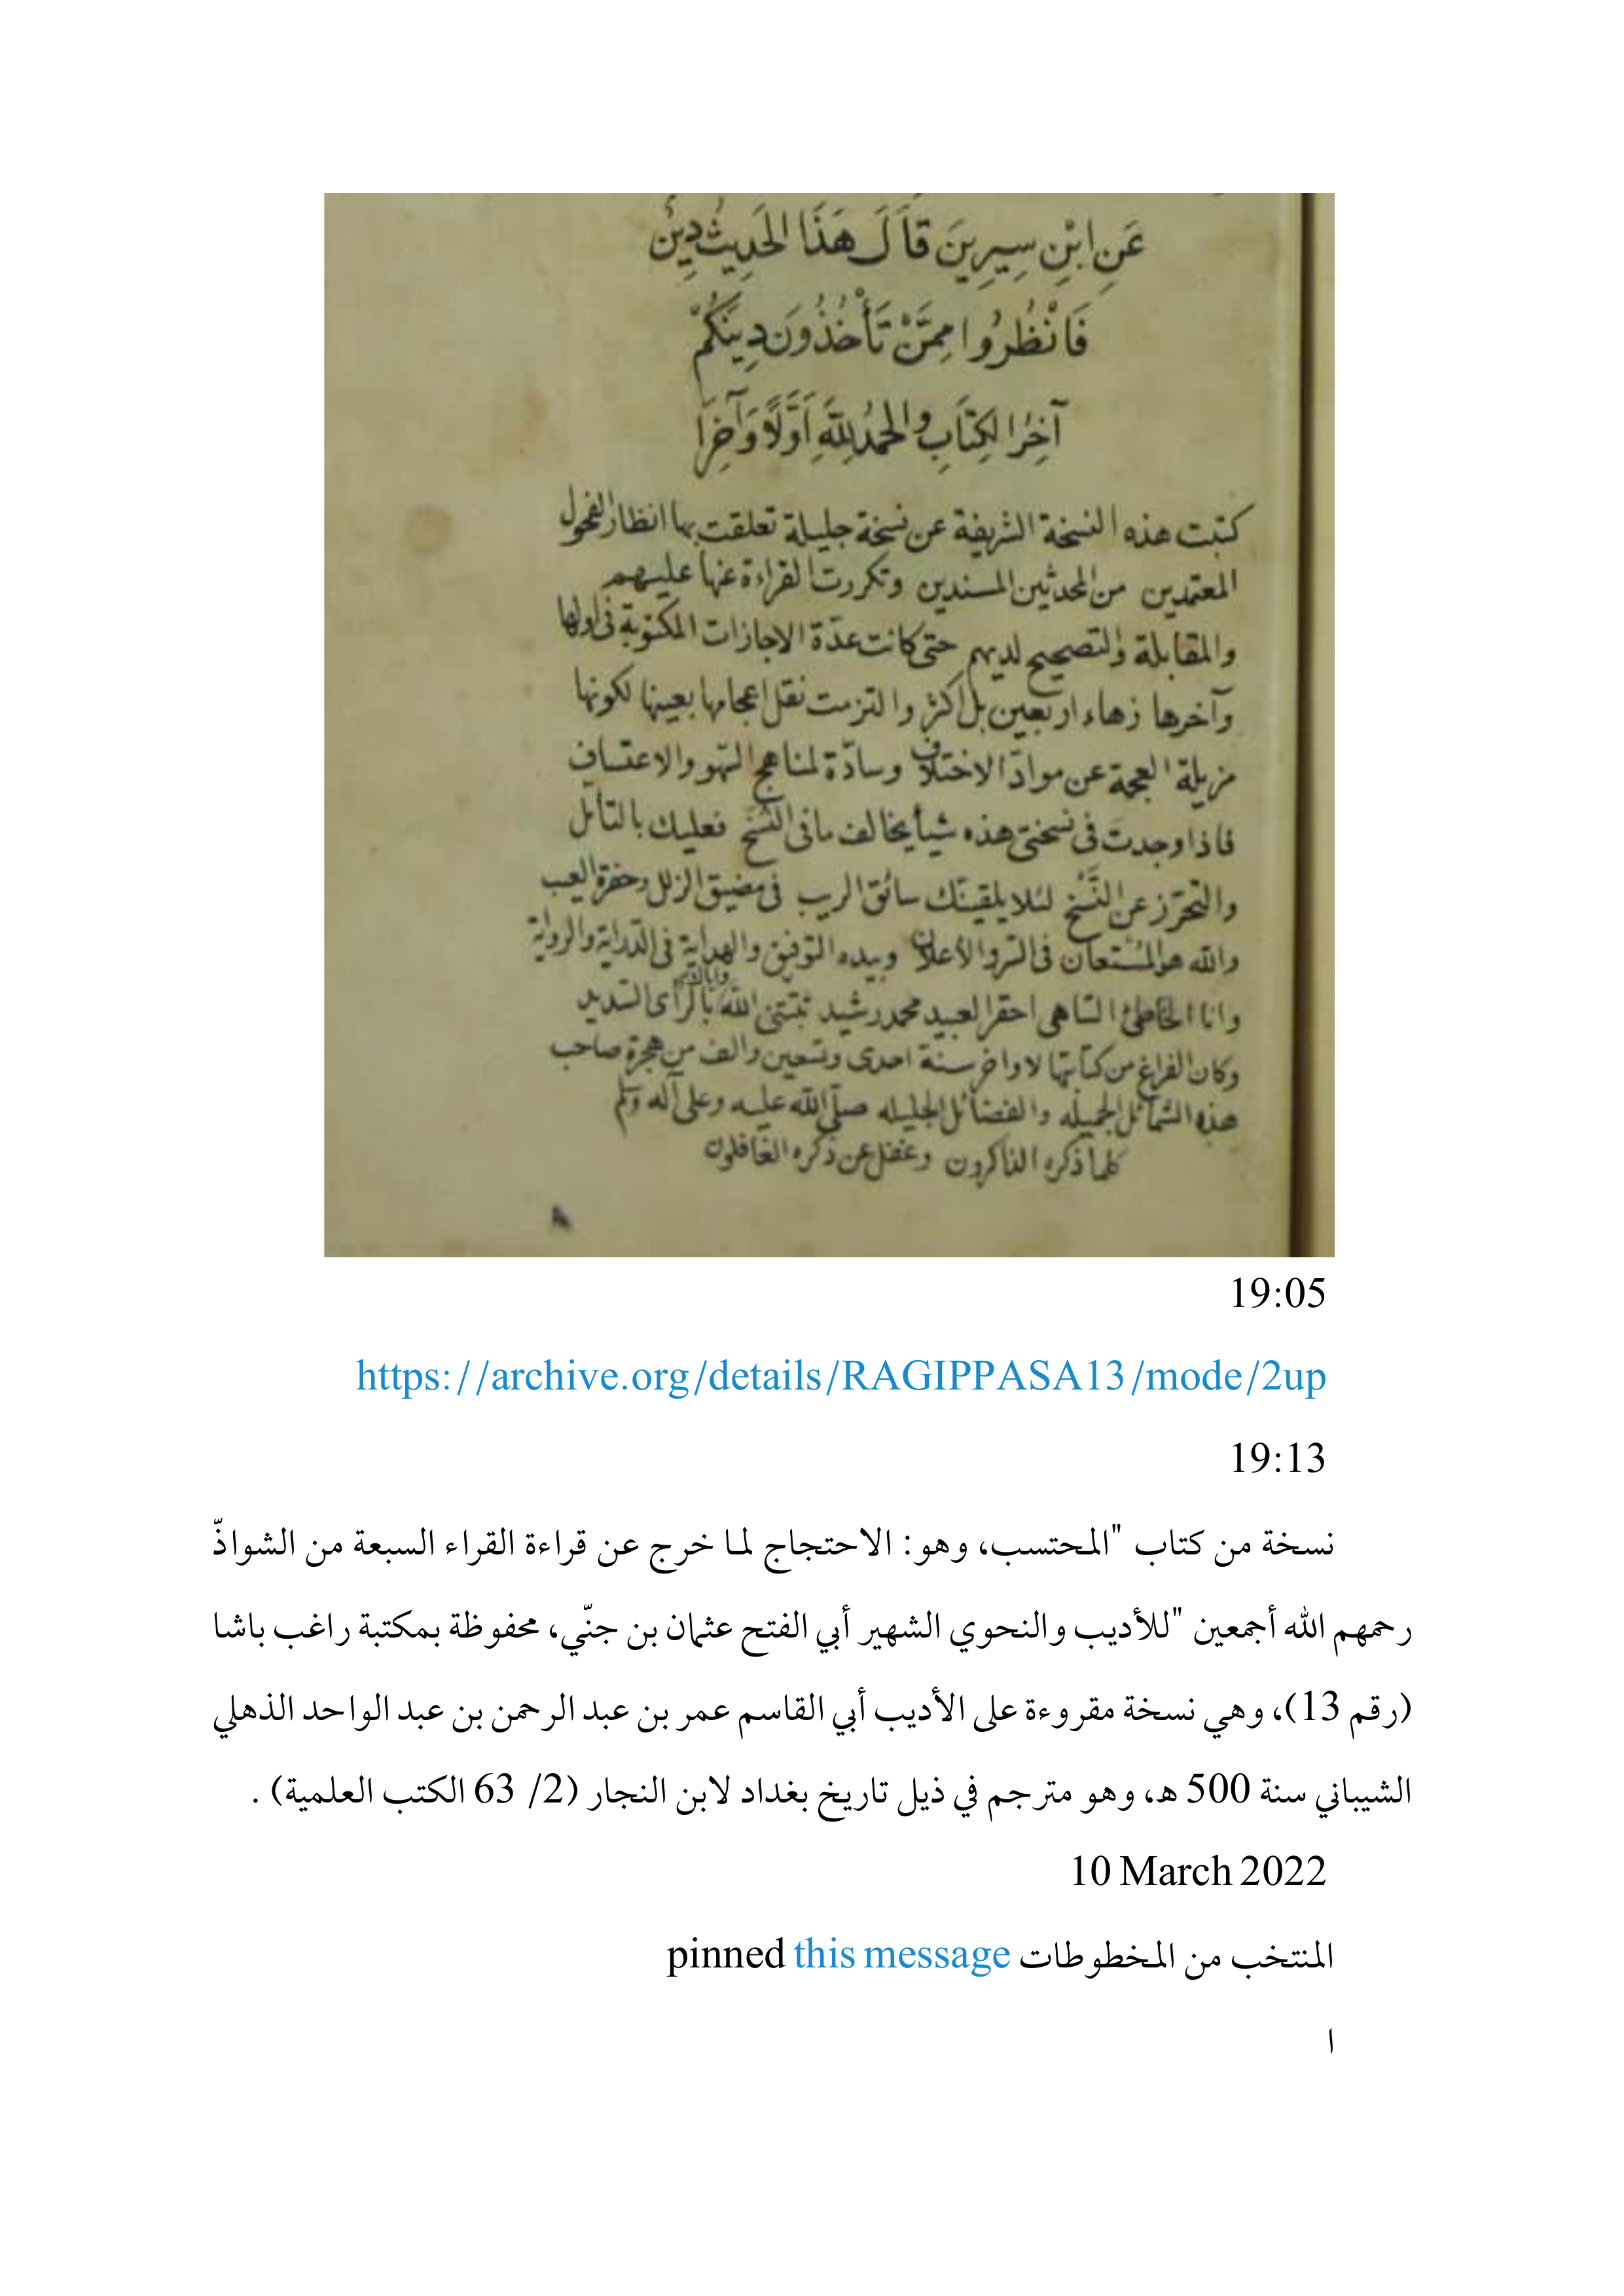 عَنِ ابْنِ سِيرِينَ قَالَ هَذَا الْحَدِيثُ دِينٌ
فَانْظُرُوا مِمَّنْ تَأْخُذُونَ دِينَكُمْ
آخِرُ الكِتَابِ والحَمْدُ لِلَّهِ اَوَّلًا وَآخِرًا
كتبت هذه النسخة الشريفة عن نسخة جليلة تعلقت بها انظار الفحول
المعتمدين من المحدثين المسندين وتكررت القراءة عنها عليهم
والمقابلة والتصحيح لديهم حتى كانت عدّة الاجازات المكتوبة فى اولها
وآخرها زهاء اربعين بل اكثر والتزمت نقل اعجامها بعينها لكونها
مزيلة العجمة عن موادّ الاختلاف وسادّة لمناهج السّهو والاعتساف
فاذا وجدتَ فى نسختى هذه شيأ يخالف ما فى النُّسَخ فعليك بالتأمّل
والتحرّز عن النَّسْخ لئلا يلقينّك سائق الريب فى مضيق الزلل وحفرة العيب
والله هو المُسْتعان فى السّر والأعلان وبيده التوفيق والهداية فى الدّراية والرواية
وانا الخاطئ السّاهى احقر العبيد محمد رشيد ثبّتنى الله بالرّأى السّديد
وكان الفراغ من كتابتها لاواخر سنة احدى وتسعين والف من هجرة صاحب
هذه الشّمائل الجميله والفضائل الجليله صلّى الله عليه وعلى آله وسلم
كلما ذكره الذاكرون وغفل عن ذكره الغافلون
19:05
https://archive.org/details/RAGIPPASA13/mode/2up
19:13
نسخة من كتاب "المحتسب، وهو: الاحتجاج لما خرج عن قراءة القراء السبعة من الشواذّ
رحمهم الله أجمعين "للأديب والنحوي الشهير أبي الفتح عثمان بن جنّي، محفوظة بمكتبة راغب باشا
(رقم 13)، وهي نسخة مقروءة على الأديب أبي القاسم عمر بن عبد الرحمن بن عبد الواحد الذهلي
الشيباني سنة 500 هـ، وهو مترجم في ذيل تاريخ بغداد لابن النجار (2/ 63 الكتب العلمية) .
10 March 2022
المنتخب من المخطوطات pinned this message
ا